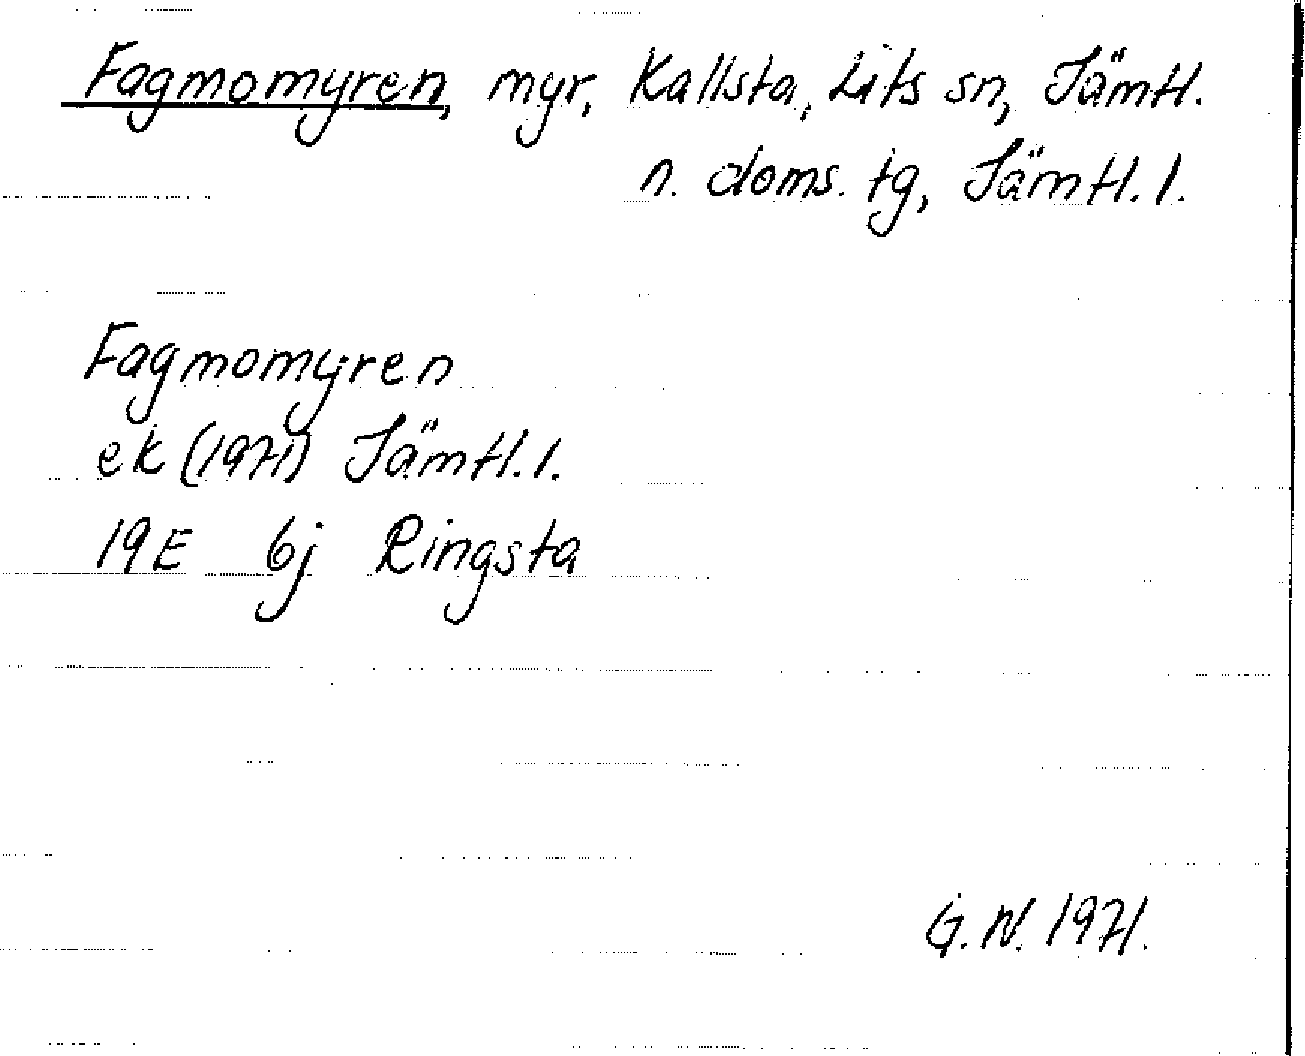 Fagmomyren, myr, Kallsta, Lits sn, Jämtl.
n. doms. tg, Jämtl. l.
Fagmomyren
ek (1971) Jämtl. l.
19E 6j Ringsta
G. N. 1971.